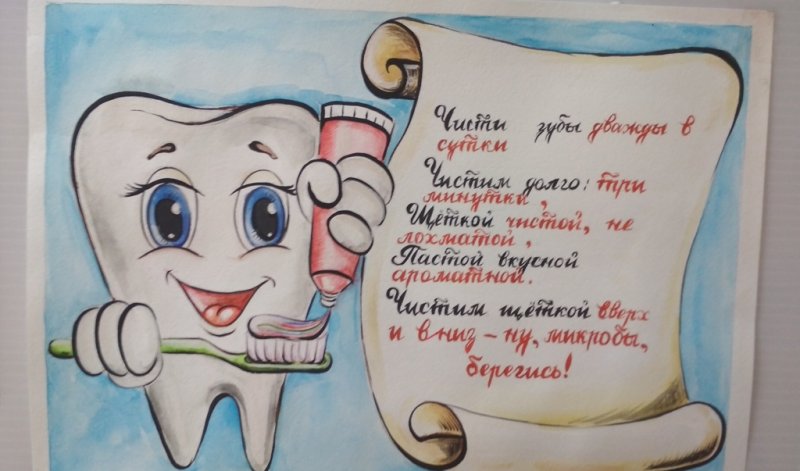 Чисти зубы дважды в
сутки
Чистим долго: три
минутки,
Щёткой чистой, не
лохматой,
Пастой вкусной
ароматной.
Чистим щёткой вверх
и вниз - ну, микробы,
берегись!